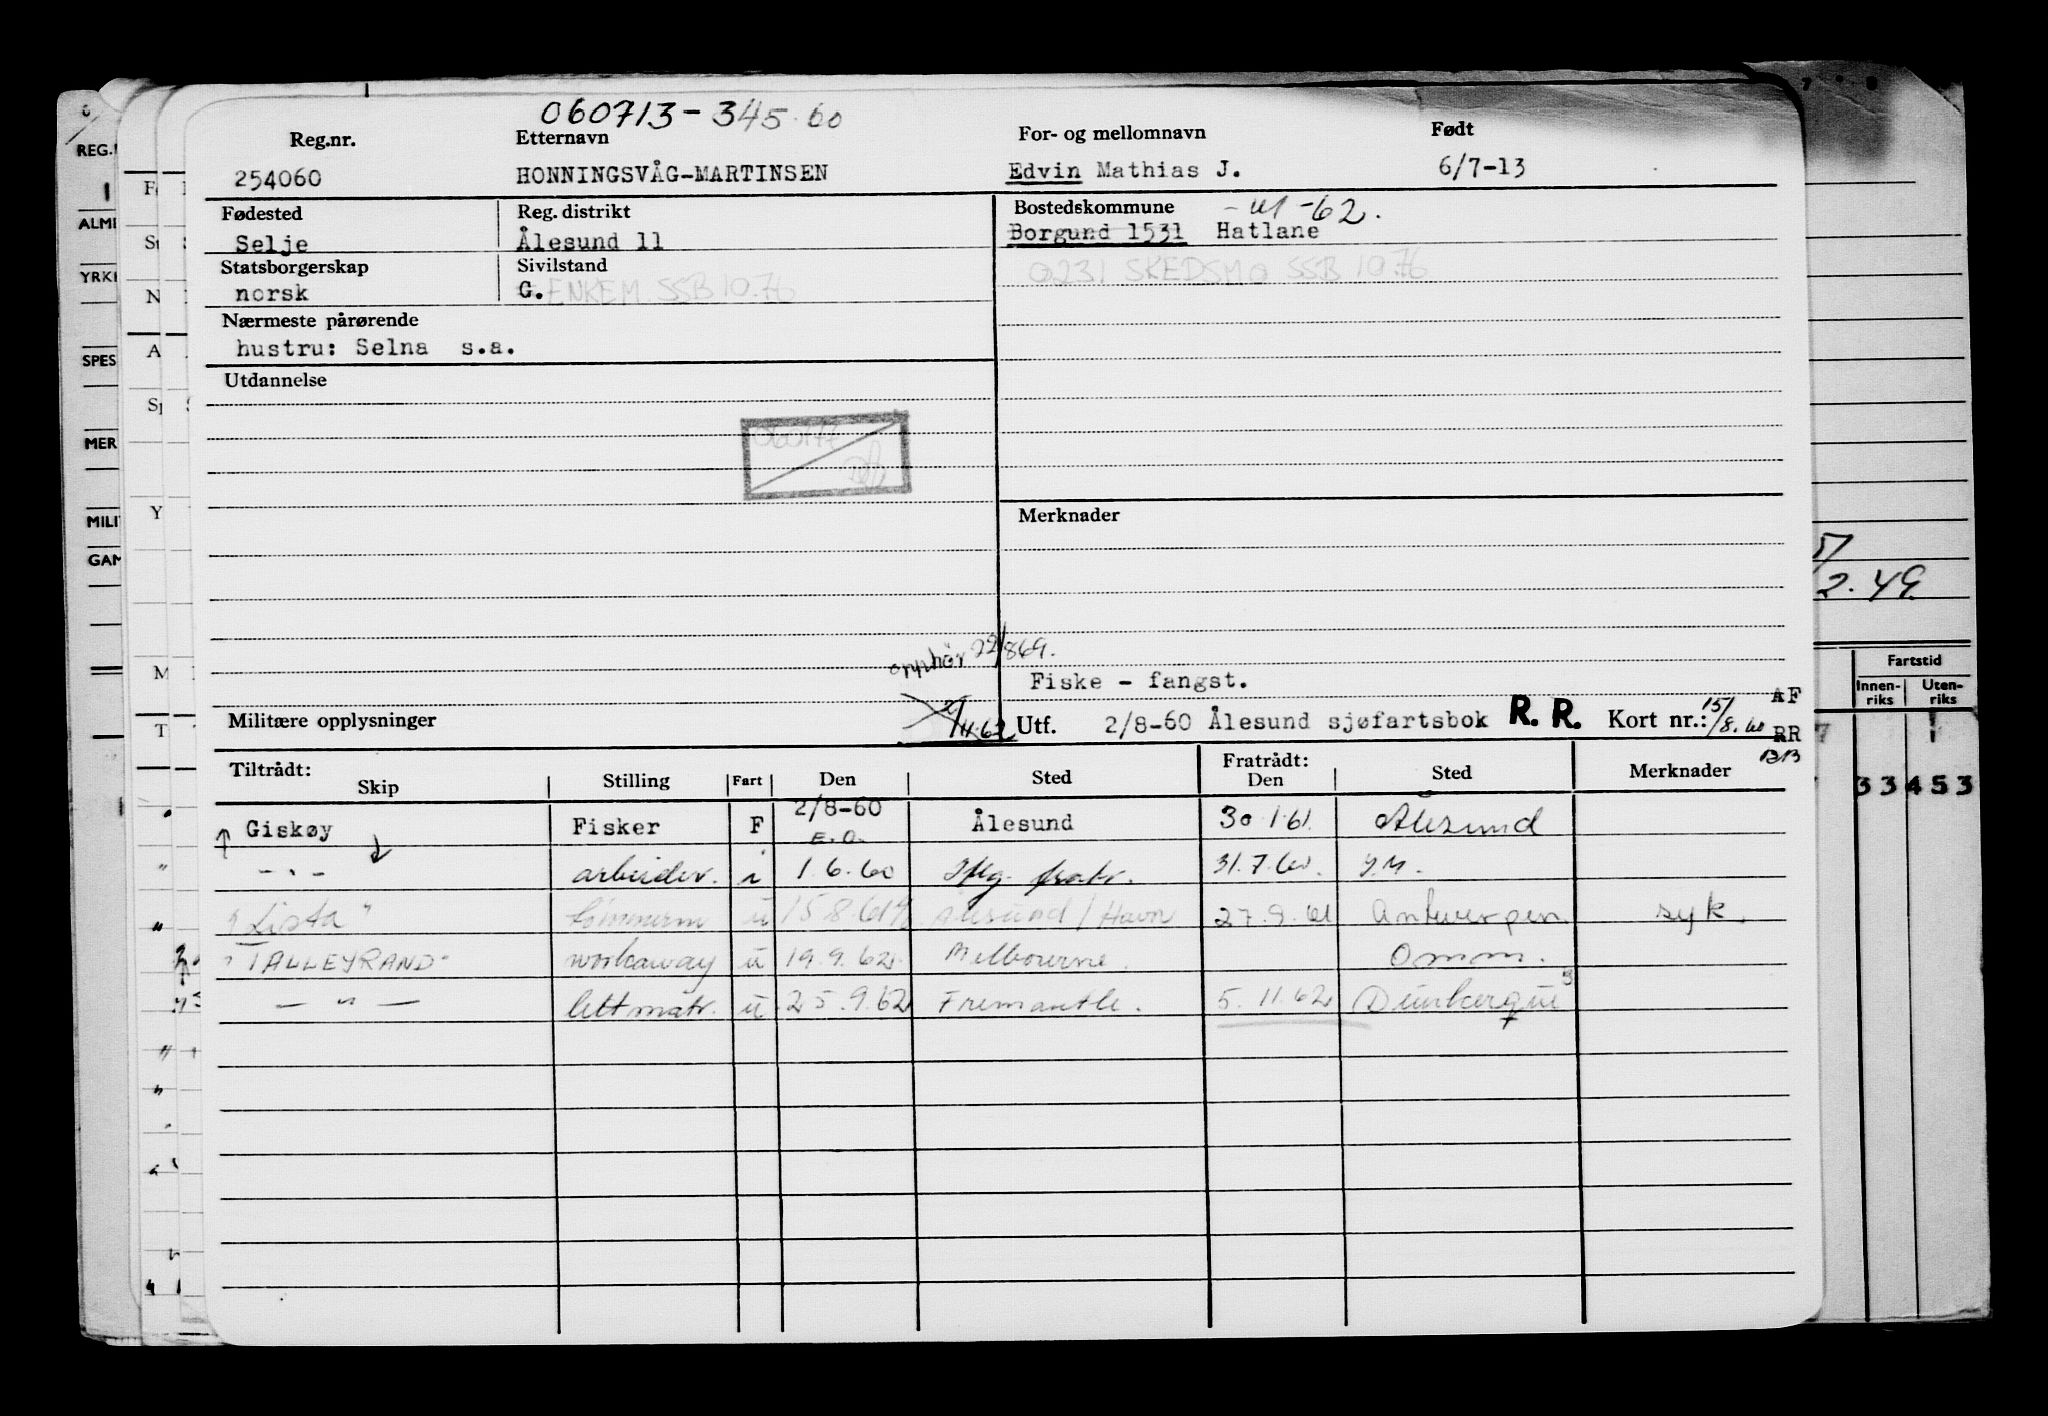 060713-345.60
Reg.nr. Etternavn For- og mellomnavn Født
254060 HONNINGSVÅG-MARTINSEN Edvin Mathias J. 6/7-13
Fødested Reg. distrikt Bostedskommune -62.
Selje Ålesund 11 Borgund 1531 Hatlane
Statsborgerskap Sivilstand 0231 SKEDSMO SSB 10.76
norsk G. ENKEM. SSB 10.76
Nærmeste pårørende
hustru: Selna s.a.
Utdannelse
Merknader
opphør 22/869.
Fiske - fangst.
Militære opplysninger 2/4.62 Utf. 2/8-60 Ålesund sjøfartsbok R. R. Kort nr.: 15/8.60 AF
RR
BB
Tiltrådt: Fratrådt:
Skip Stilling Fart Den Sted Den Sted Merknader
Giskøy Fisker F 2/8-60 Ålesund 30.1.61. Ålesund
E.O.
- " - arbeider. i 1.6.60 31.7.60. J.M.
"Lista" tømmerm u 15.8.61 Ålesund/Havn 27.9.61 Antwerpen syk.
"TALLEYRAND" workaway u 19.9.62 Melbourne. Omm.
- " - lettmatr. u 25.9.62 Fremantle. 5.11.62 Dunkerque
REG.
ALM
YRK
SPES
MER
MILI
GAM
2.49.
Fartstid
Innen-riks Uten-riks
33 453